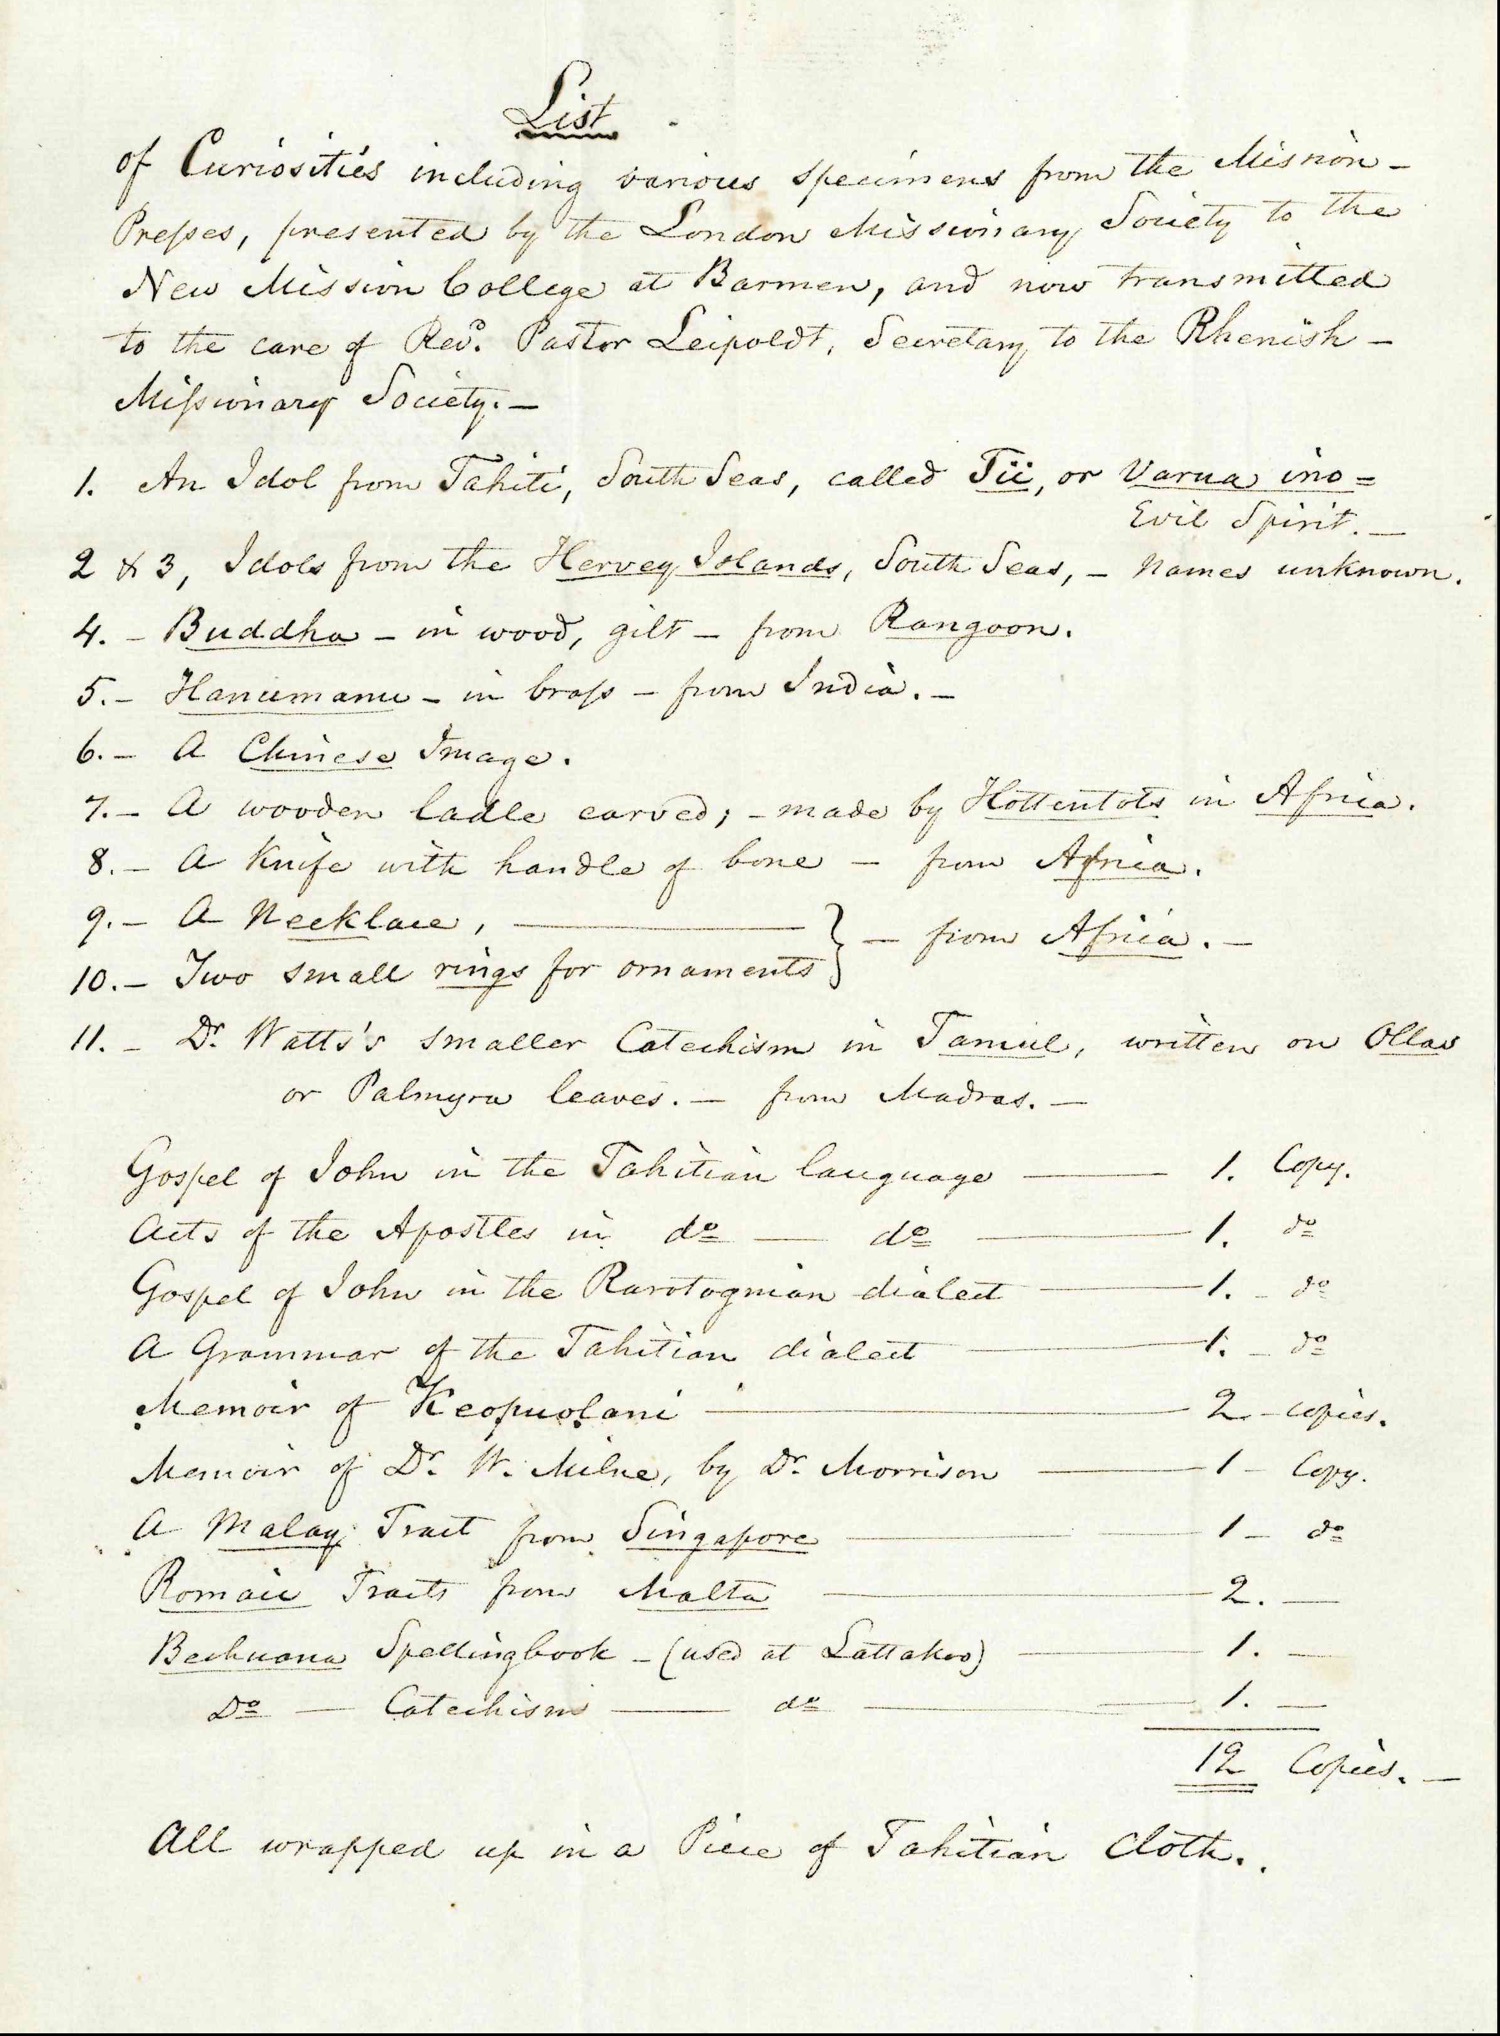 List
of Curiosities including various specimens from the Mission-
Presses, presented by the London Missionary Society to the
New Mission College at Barmen, and now transmitted
to the care of Revd. Pastor Leipoldt, Secretary to the Rhenish-
Missionary Society.-
1. An Idol from Tahiti, South Seas, called Tii, or Varua ino =
Evil Spirit.-
2 & 3, Idols from the Hervey Islands, South Seas, - Names unknown.
4. - Buddha - in wood, gilt - from Rangoon.
5. - Hanumanu - in brass - from India. -
6. - A Chinese Image.
7. - A wooden ladle carved; - made by Hottentots in Africa.
8. - A Knife with handle of bone - from Africa.
9. - A Necklace, ——— } - from Africa. -
10. - Two small rings for ornaments
11. - Dr. Watts's smaller Catechism in Tamul, written on Ollas
or Palmyra leaves. - from Madras. -
Gospel of John in the Tahitian language ——— 1. Copy.
Acts of the Apostles in do — do ——— 1. do
Gospel of John in the Rarotognian dialect ——— 1. - do
A Grammar of the Tahitian dialect ——— 1. - do
Memoir of Keopuolani ——— 2. - copies.
Memoir of Dr. W. Milne, by Dr. Morrison ——— 1 - Copy.
A Malay Tract from Singapore ——— 1 - do
Romaic Tracts from Malta ——— 2. —
Bechuana Spellingbook - (used at Lattakoo) ——— 1. —
Do — Catechism — do ——— 1. —
12 Copies. -
All wrapped up in a Piece of Tahitian Cloth.